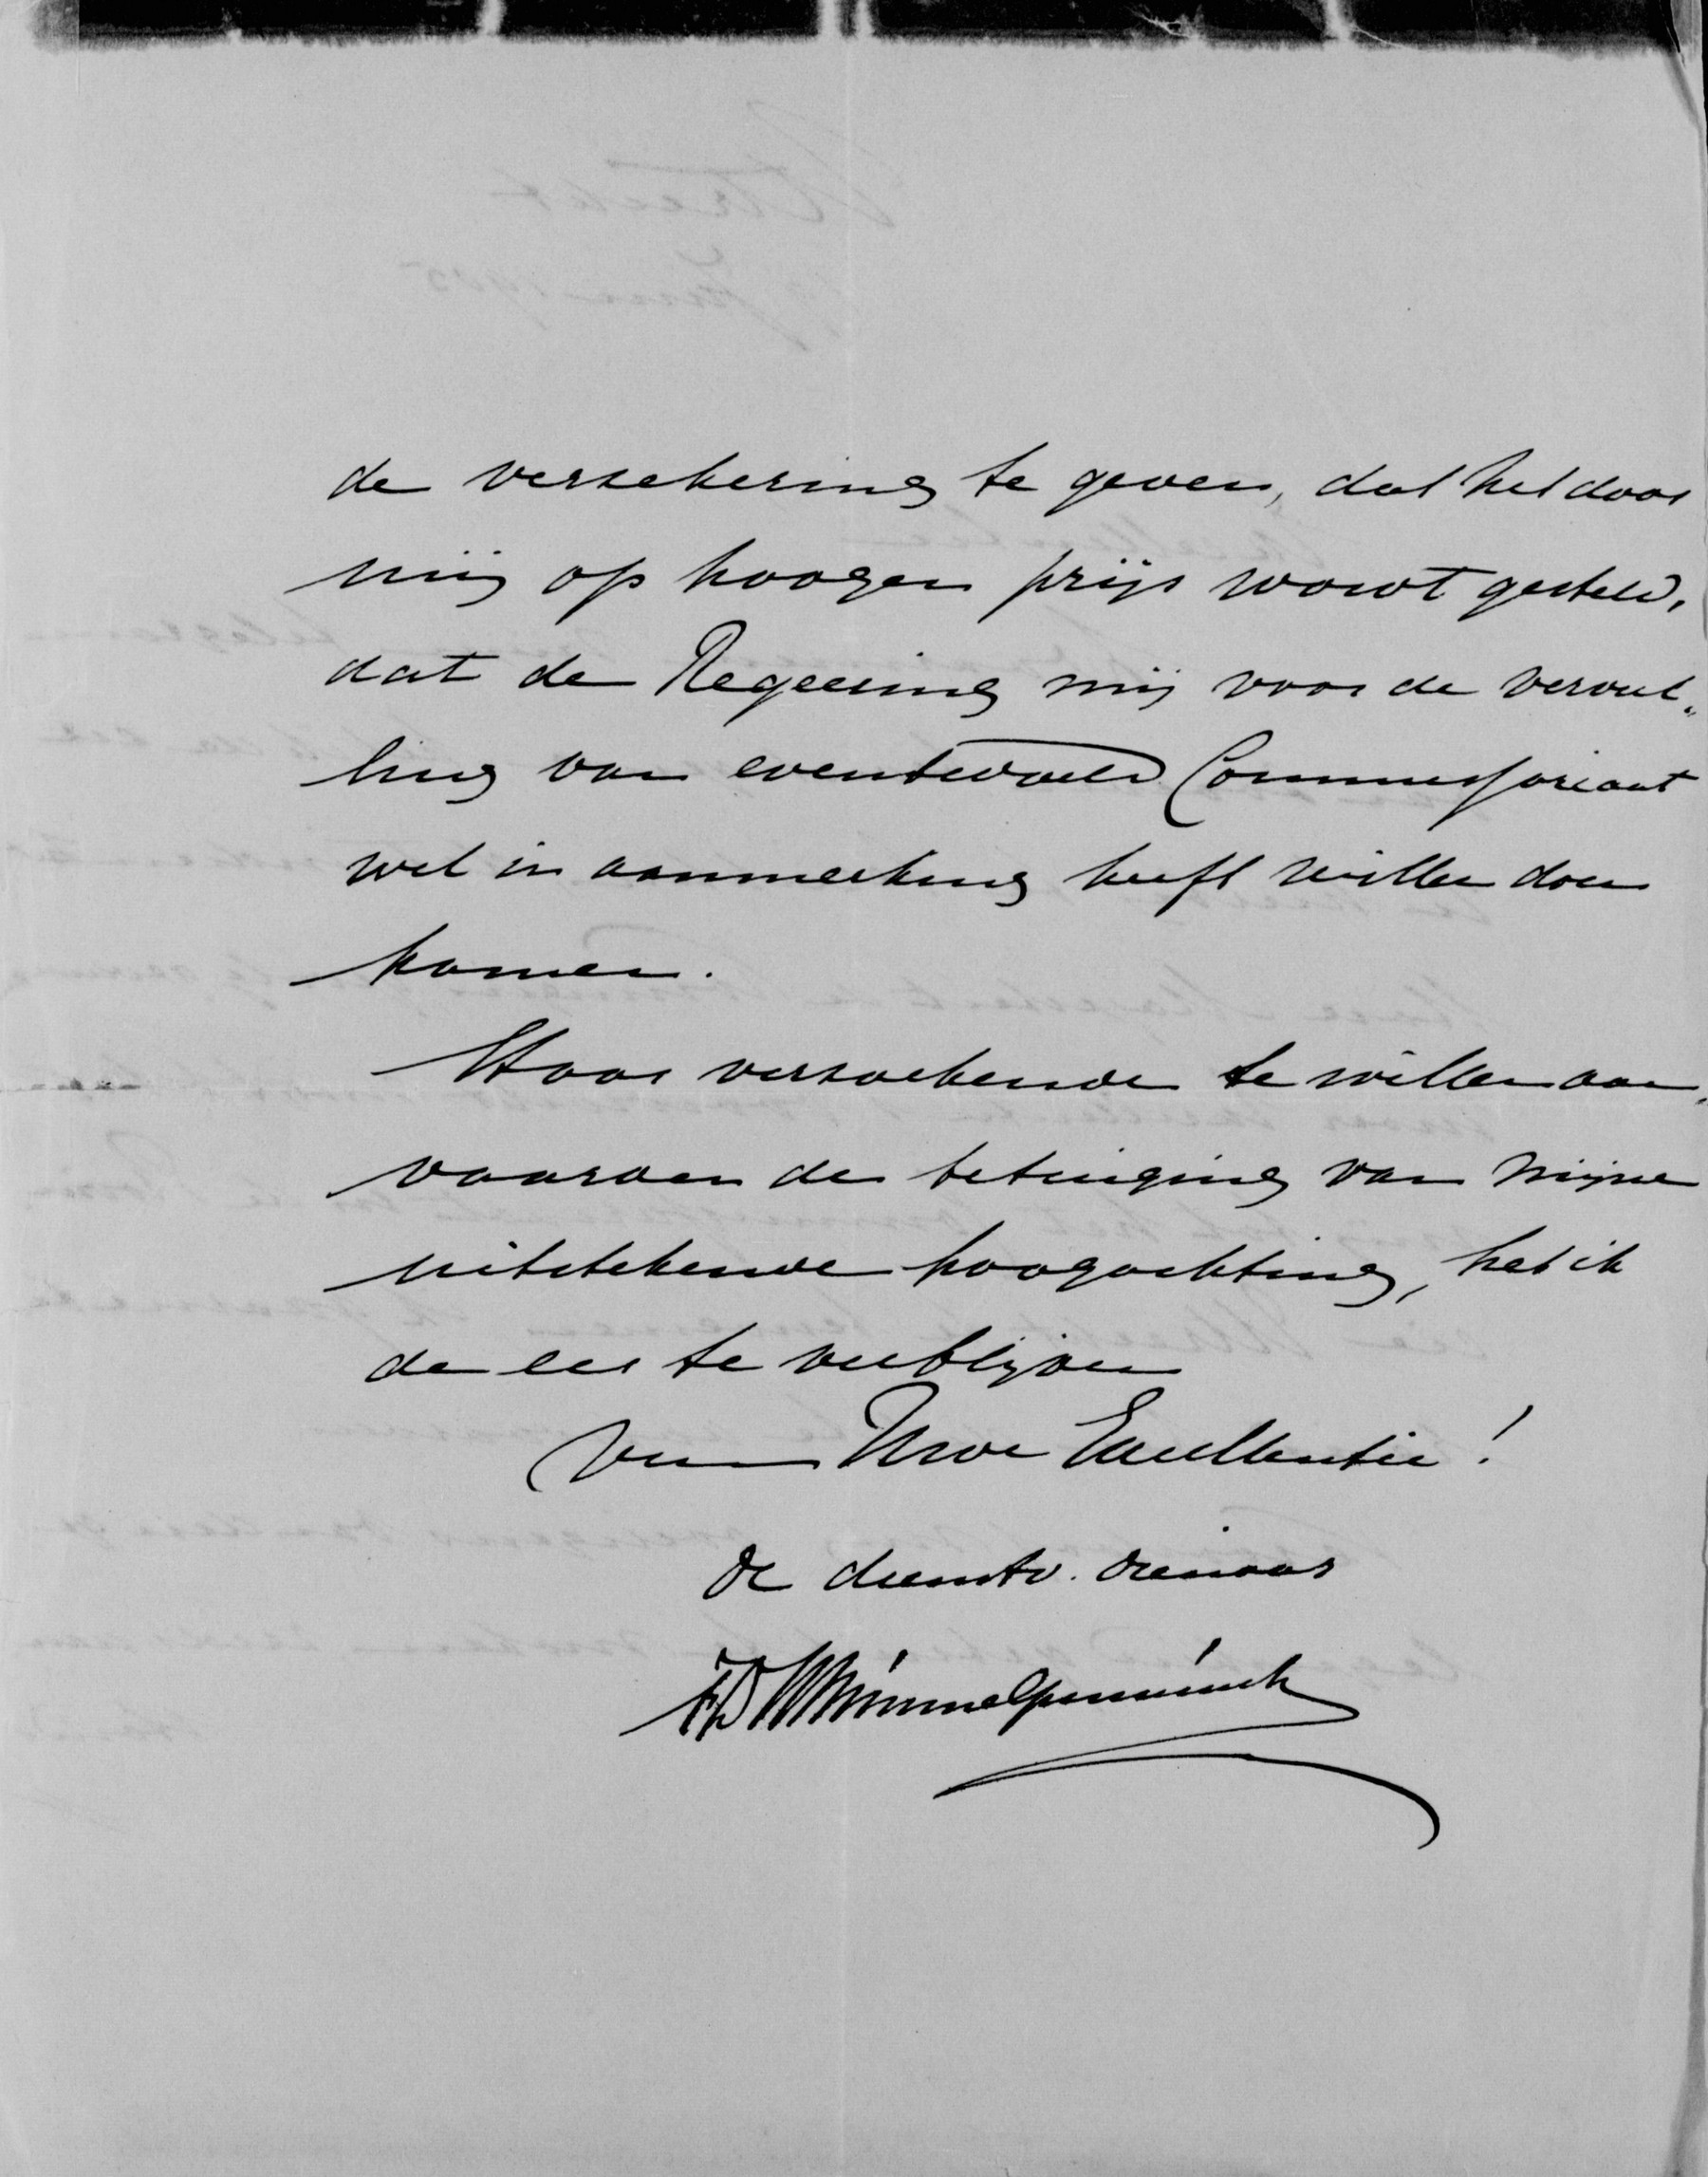 de verzekering te geven, dat het door
mij op hoogen prijs wordt gesteld,
dat de Regeering mij voor de vervul„
ling van eventueel Commissariaat
wel in aanmerking heeft willen doen
komen.
Haar verzoekende te willen aan„
vaarden de betuiging van mijne
uitstekende hoogachting, heb ik
de eer te verblijven
van Uwe Excellentie!
de dienstv. dienaar
Schimmelpenninck